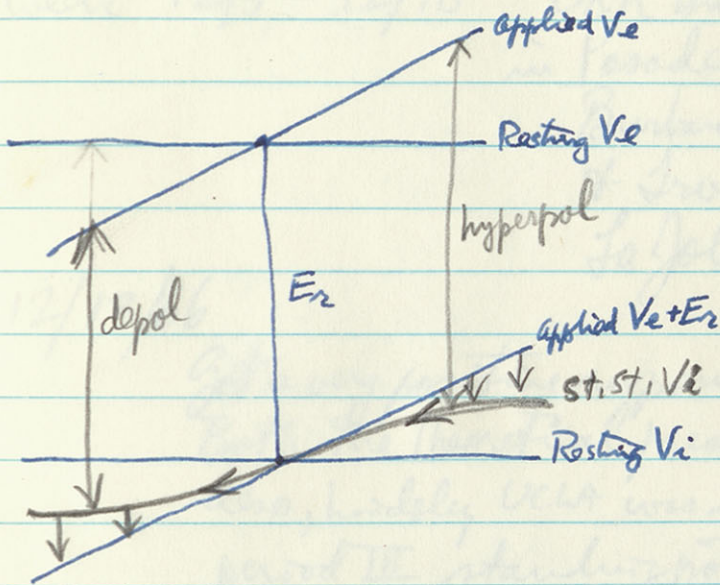 applied Ve
Resting Ve
hyperpol
Er
depol
applied Ve+Er
st. st. Vi
Resting Vi
12/